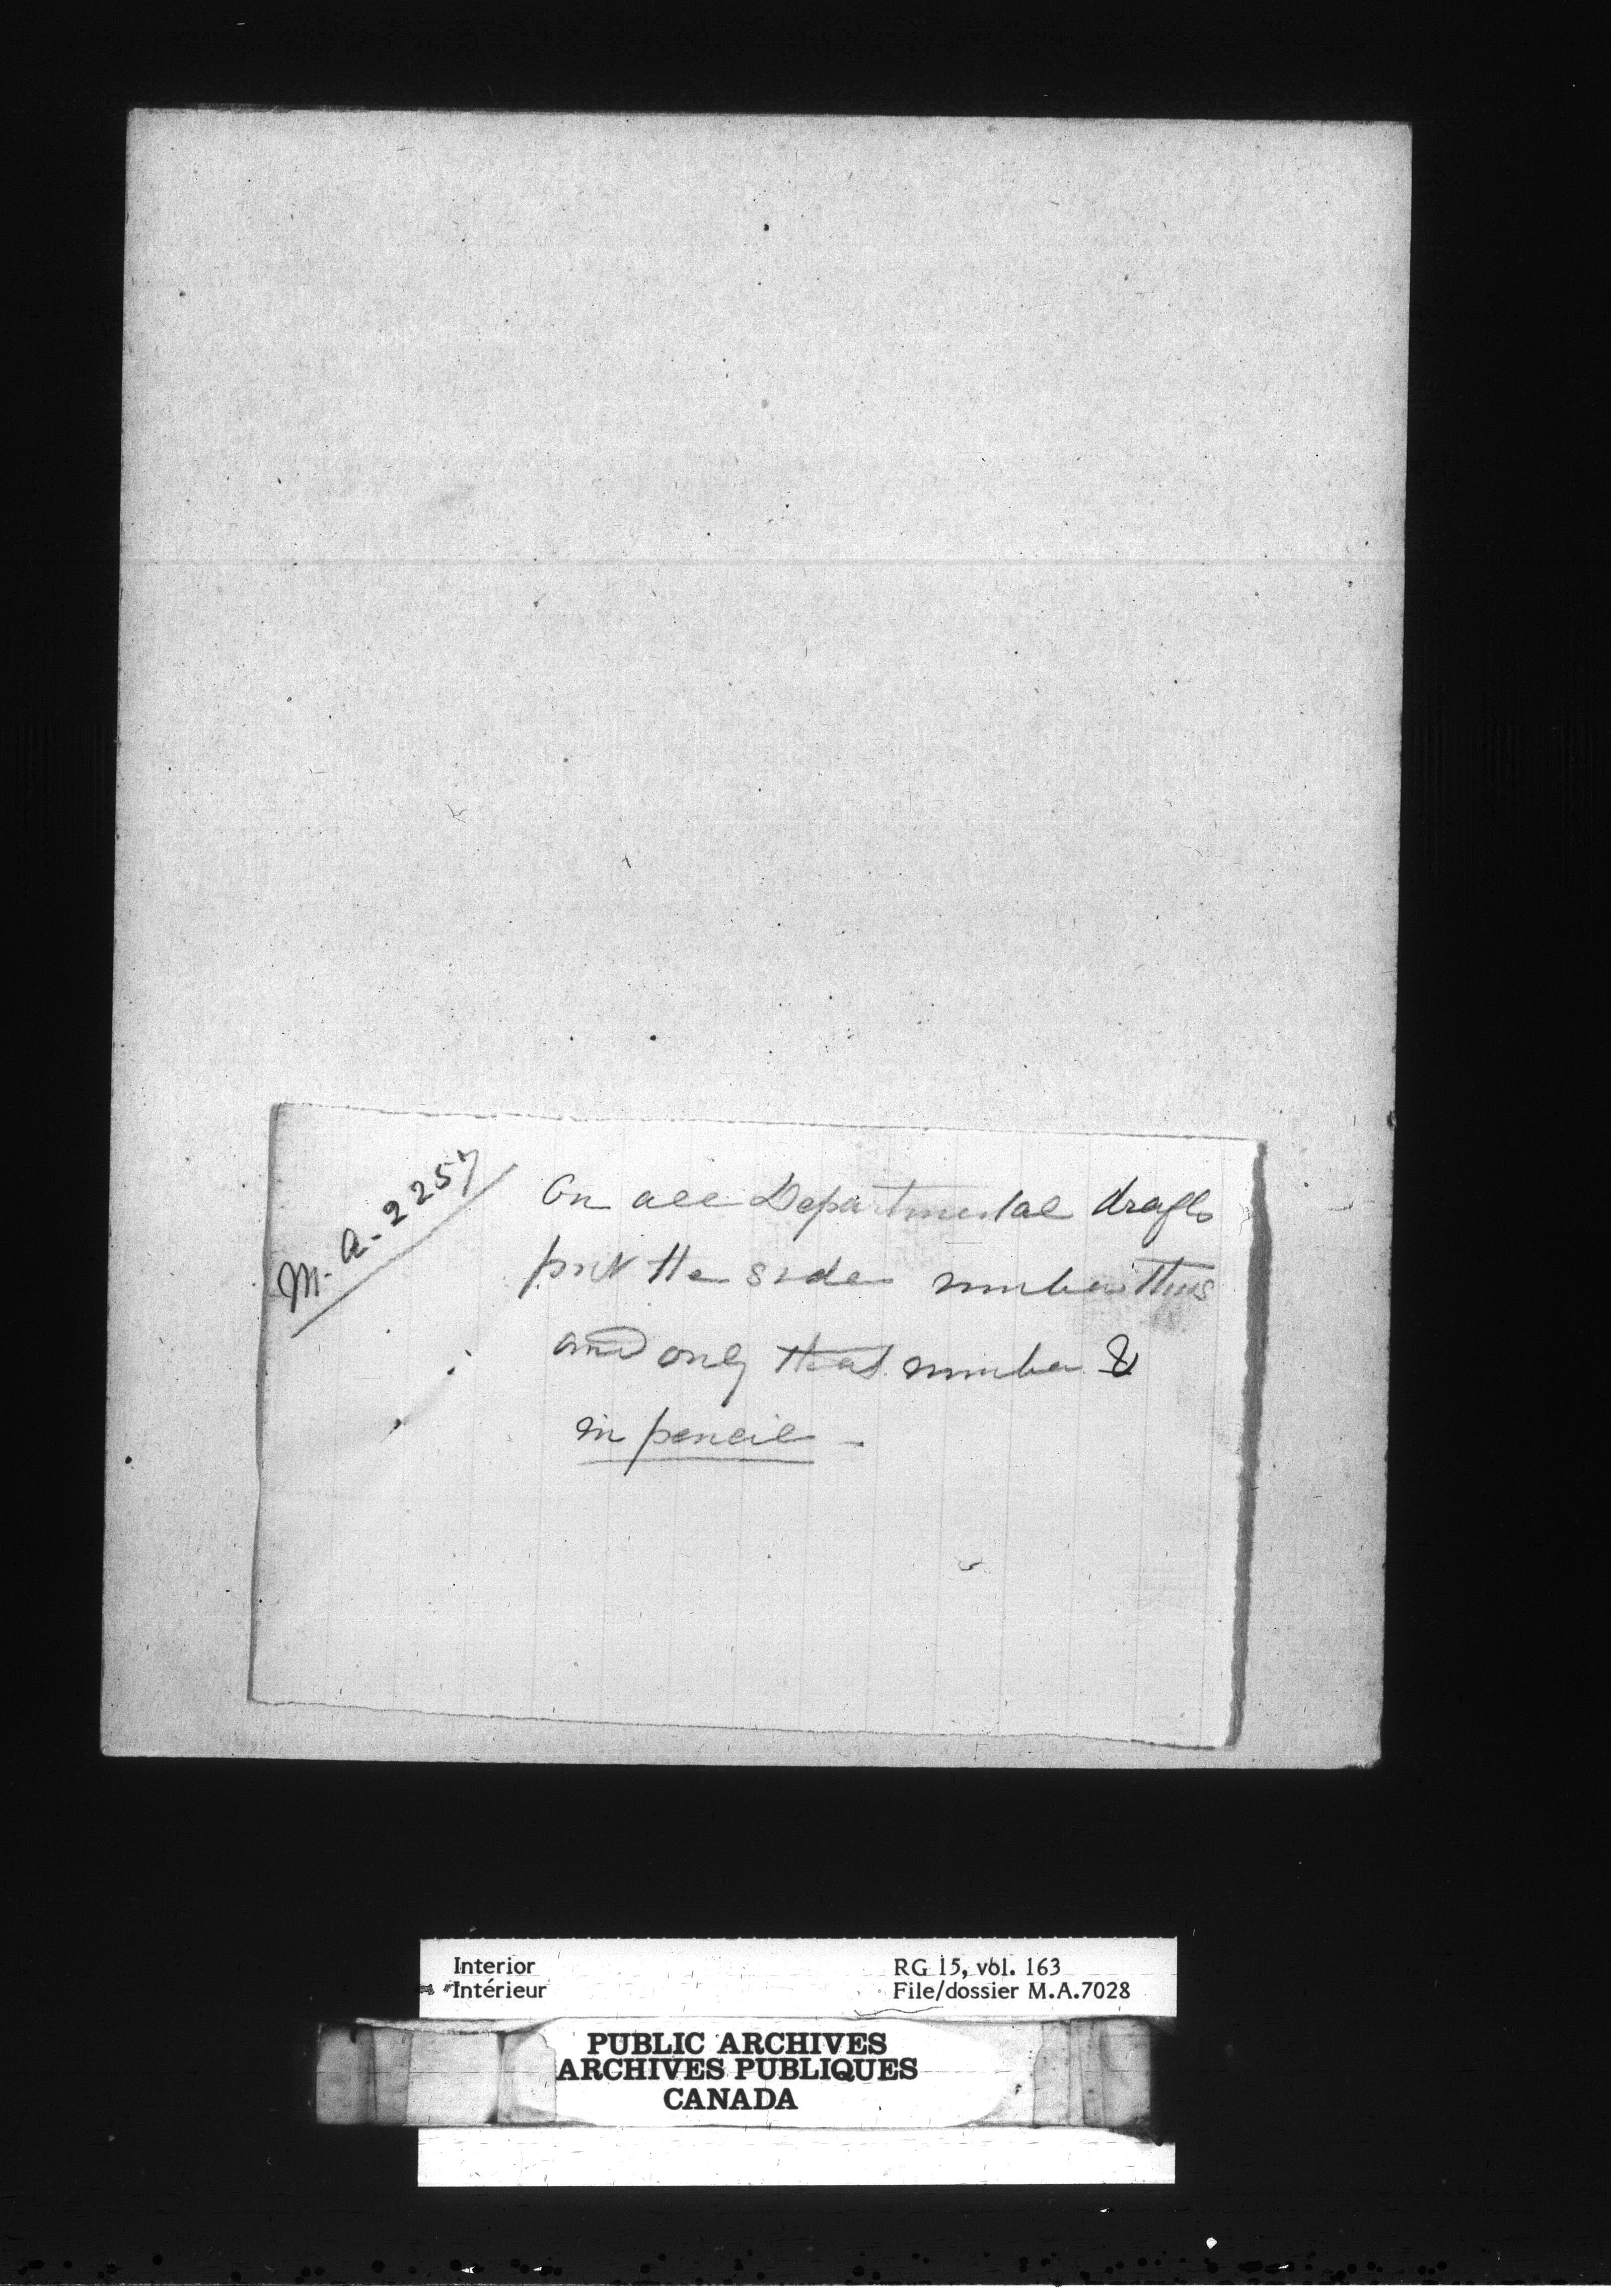 M. A. 2257
On all Departmental drafts
put the side number thus
and only that number &
in pencil -
Interior
Intérieur
RG 15, vol. 163
File/dossier M.A.7028
PUBLIC ARCHIVES
ARCHIVES PUBLIQUES
CANADA